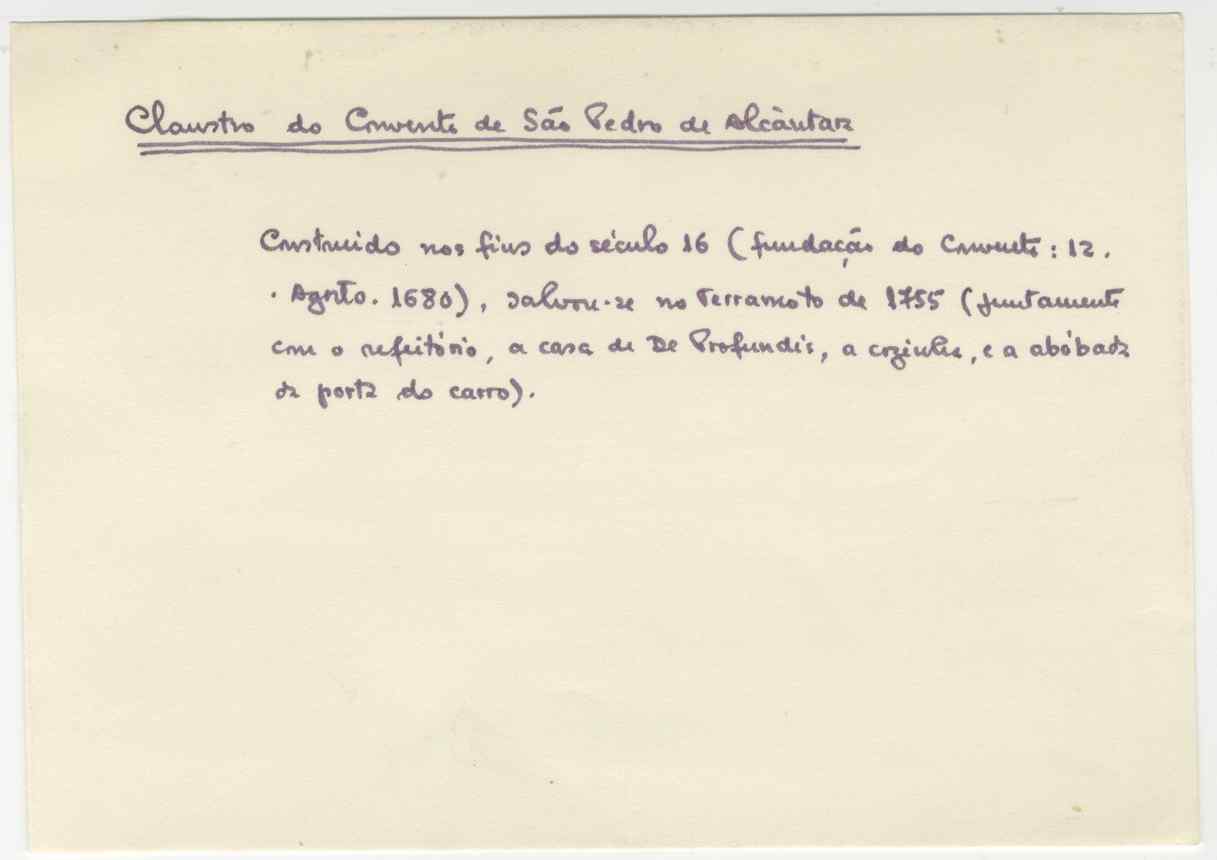 Claustro do Convento de São Pedro de Alcântara
Construido nos fins do século 16 (fundação do Convento: 12.
. Agosto. 1680), salvou-se no Terramoto de 1755 (juntamente
com o refeitório, a casa de De Profundis, a cozinha, e a abóbada
da porta do carro).